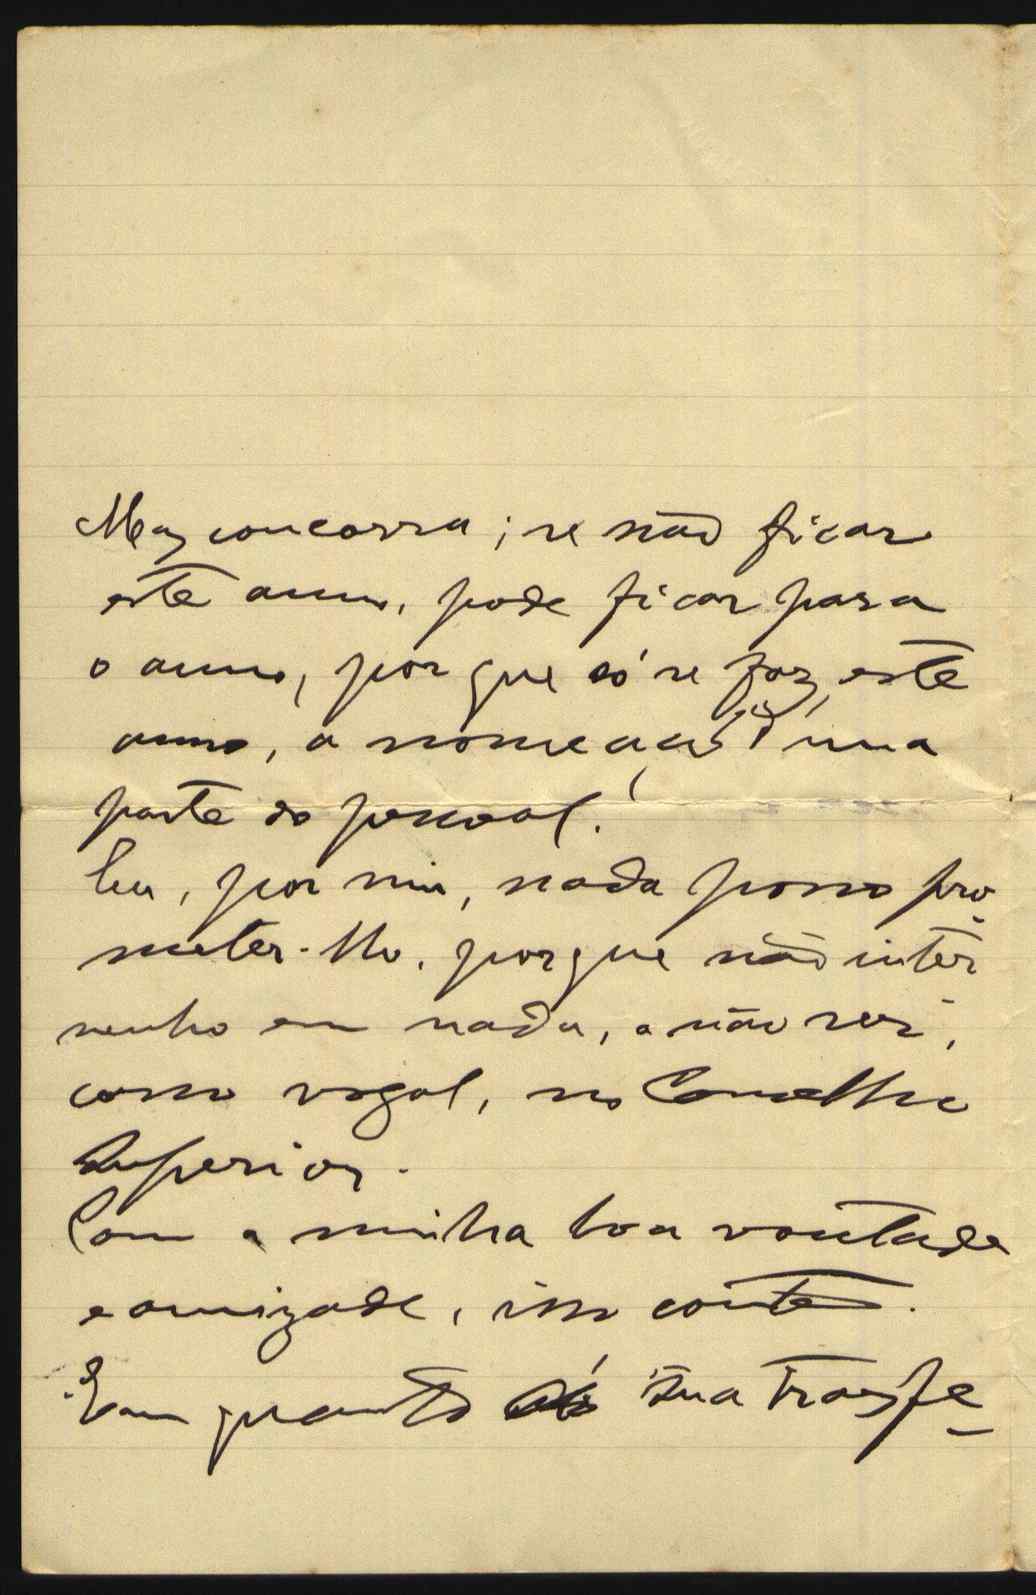 Mas concorra; se não ficar
este anno, pode ficar para
o anno, porque só se faz, este
anno, a nomeação d'uma
parte do pessoal!
Eu, por mim, nada posso pro-
meter-lho, porque não inter-
venho em nada, a não ser,
como vogal, no Conselho
Superior.
Com a minha boa vontade
e amizade, isso conte.
Em quanto á sua trasfe-